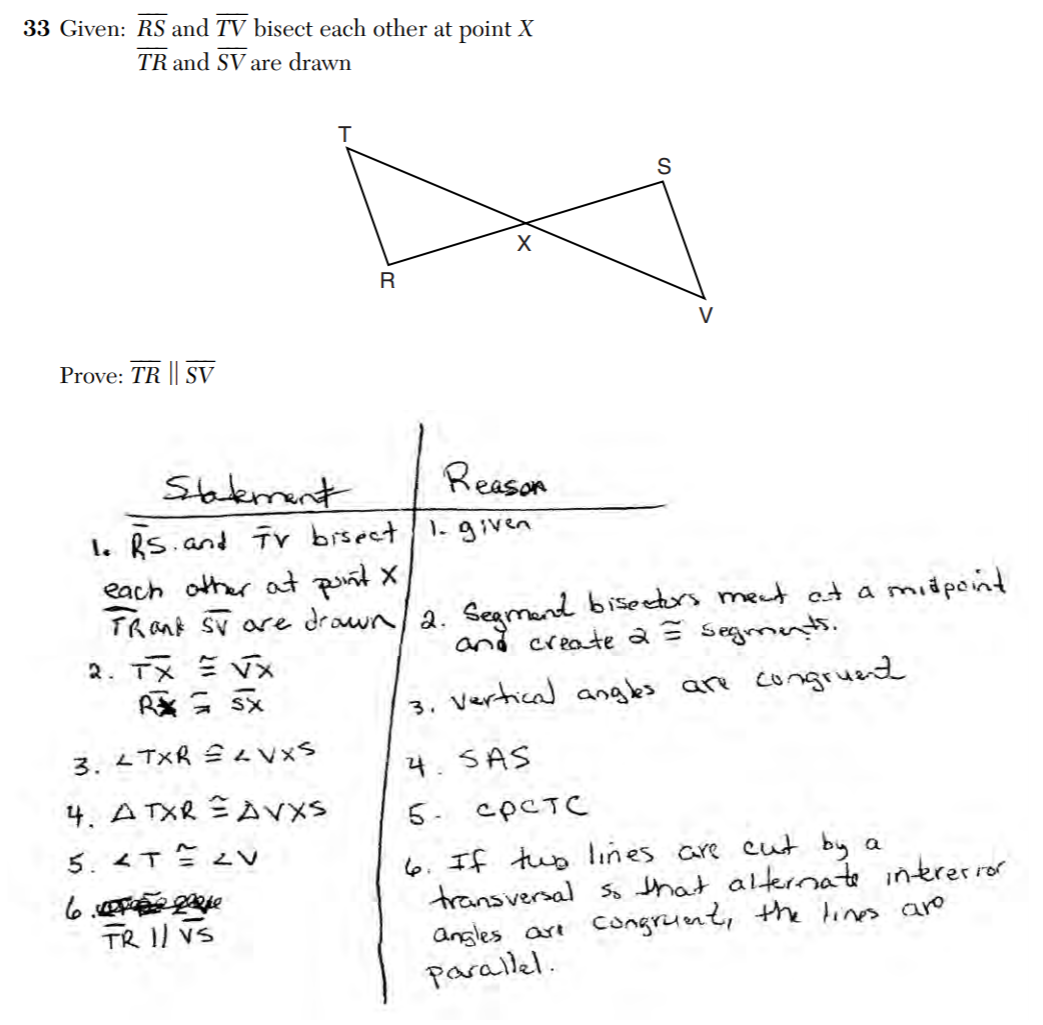 33 Given: RS and TV bisect each other at point X
TR and SV are drawn
T
S
X
R
V
Prove: TR || SV
Statement
Reason
1. RS and TV bisect
each other at point X
TR and SV are drawn
1. given
2. TX ≅ VX
RX ≅ SX
2. Segment bisectors meet at a midpoint
and create 2 ≅ segments.
3. ∠TXR ≅ ∠VXS
3. Vertical angles are congruent
4. ΔTXR ≅ ΔVXS
4. SAS
5. ∠T ≅ ∠V
5. CPCTC
6.
TR || VS
6. If two lines are cut by a
transversal so that alternate intererior
angles are congruent, the lines are
parallel.